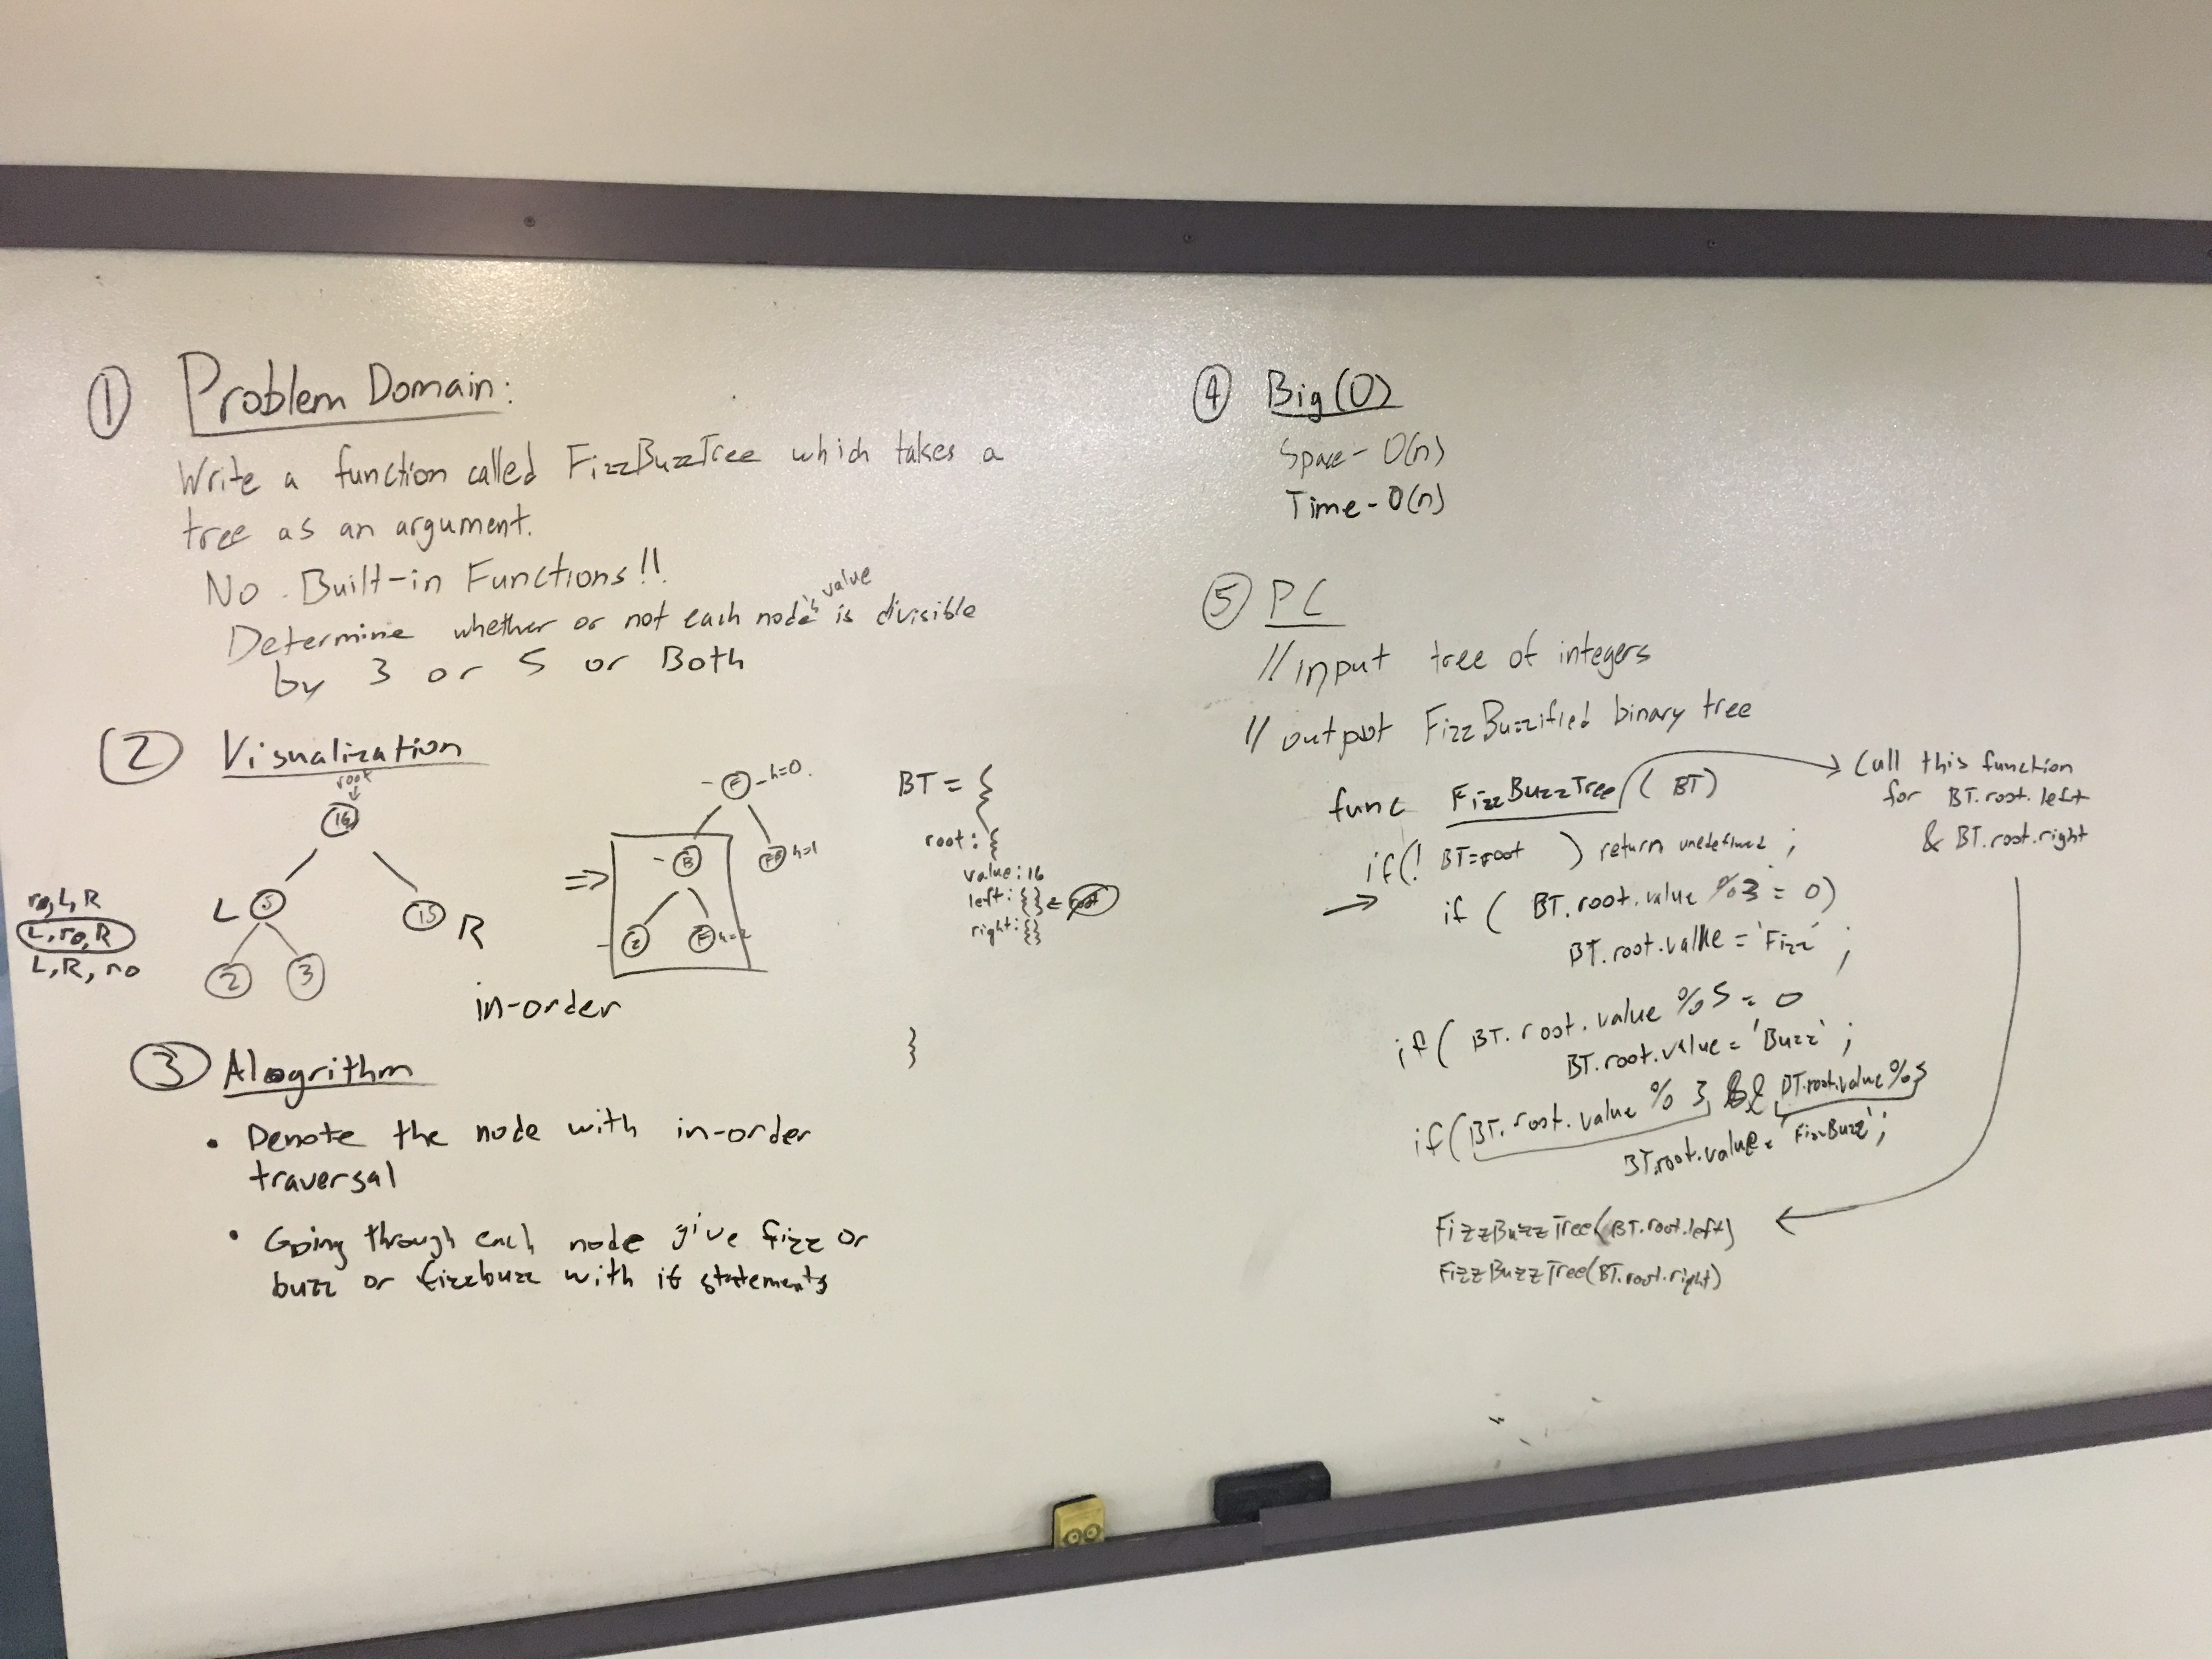 ① Problem Domain:
Write a function called FizzBuzzTree which takes a
tree as an argument.
No Built-in Functions!!
Determine whether or not each node's value is divisible
by 3 or 5 or Both
② Visualization
root
16
L 5
15 R
2 3
ro, L, R
L, ro, R
L, R, ro
⇒
F - h=0
B
FB h=1
2
F
in-order
BT = {
root: {
value: 16
left: {} ← root
right: {}
}
③ Alogrithm
• Denote the node with in-order
traversal
• Going through each node give fizz or
buzz or fizzbuzz with if statements
④ Big(O)
Space - O(n)
Time - O(n)
⑤ PC
// input tree of integers
// output FizzBuzzified binary tree
func FizzBuzzTree (BT)
→ Call this function
for BT.root.left
& BT.root.right
if(! BT=root ) return undefined ;
→ if ( BT.root.value %3 = 0)
BT.root.value = 'Fizz' ;
if ( BT.root.value %5 = 0
BT.root.value = 'Buzz' ;
if (BT.root.value % 3 && BT.root.value %5
BT.root.value = 'FizzBuzz' ;
FizzBuzzTree(BT.root.left)
FizzBuzzTree(BT.root.right)